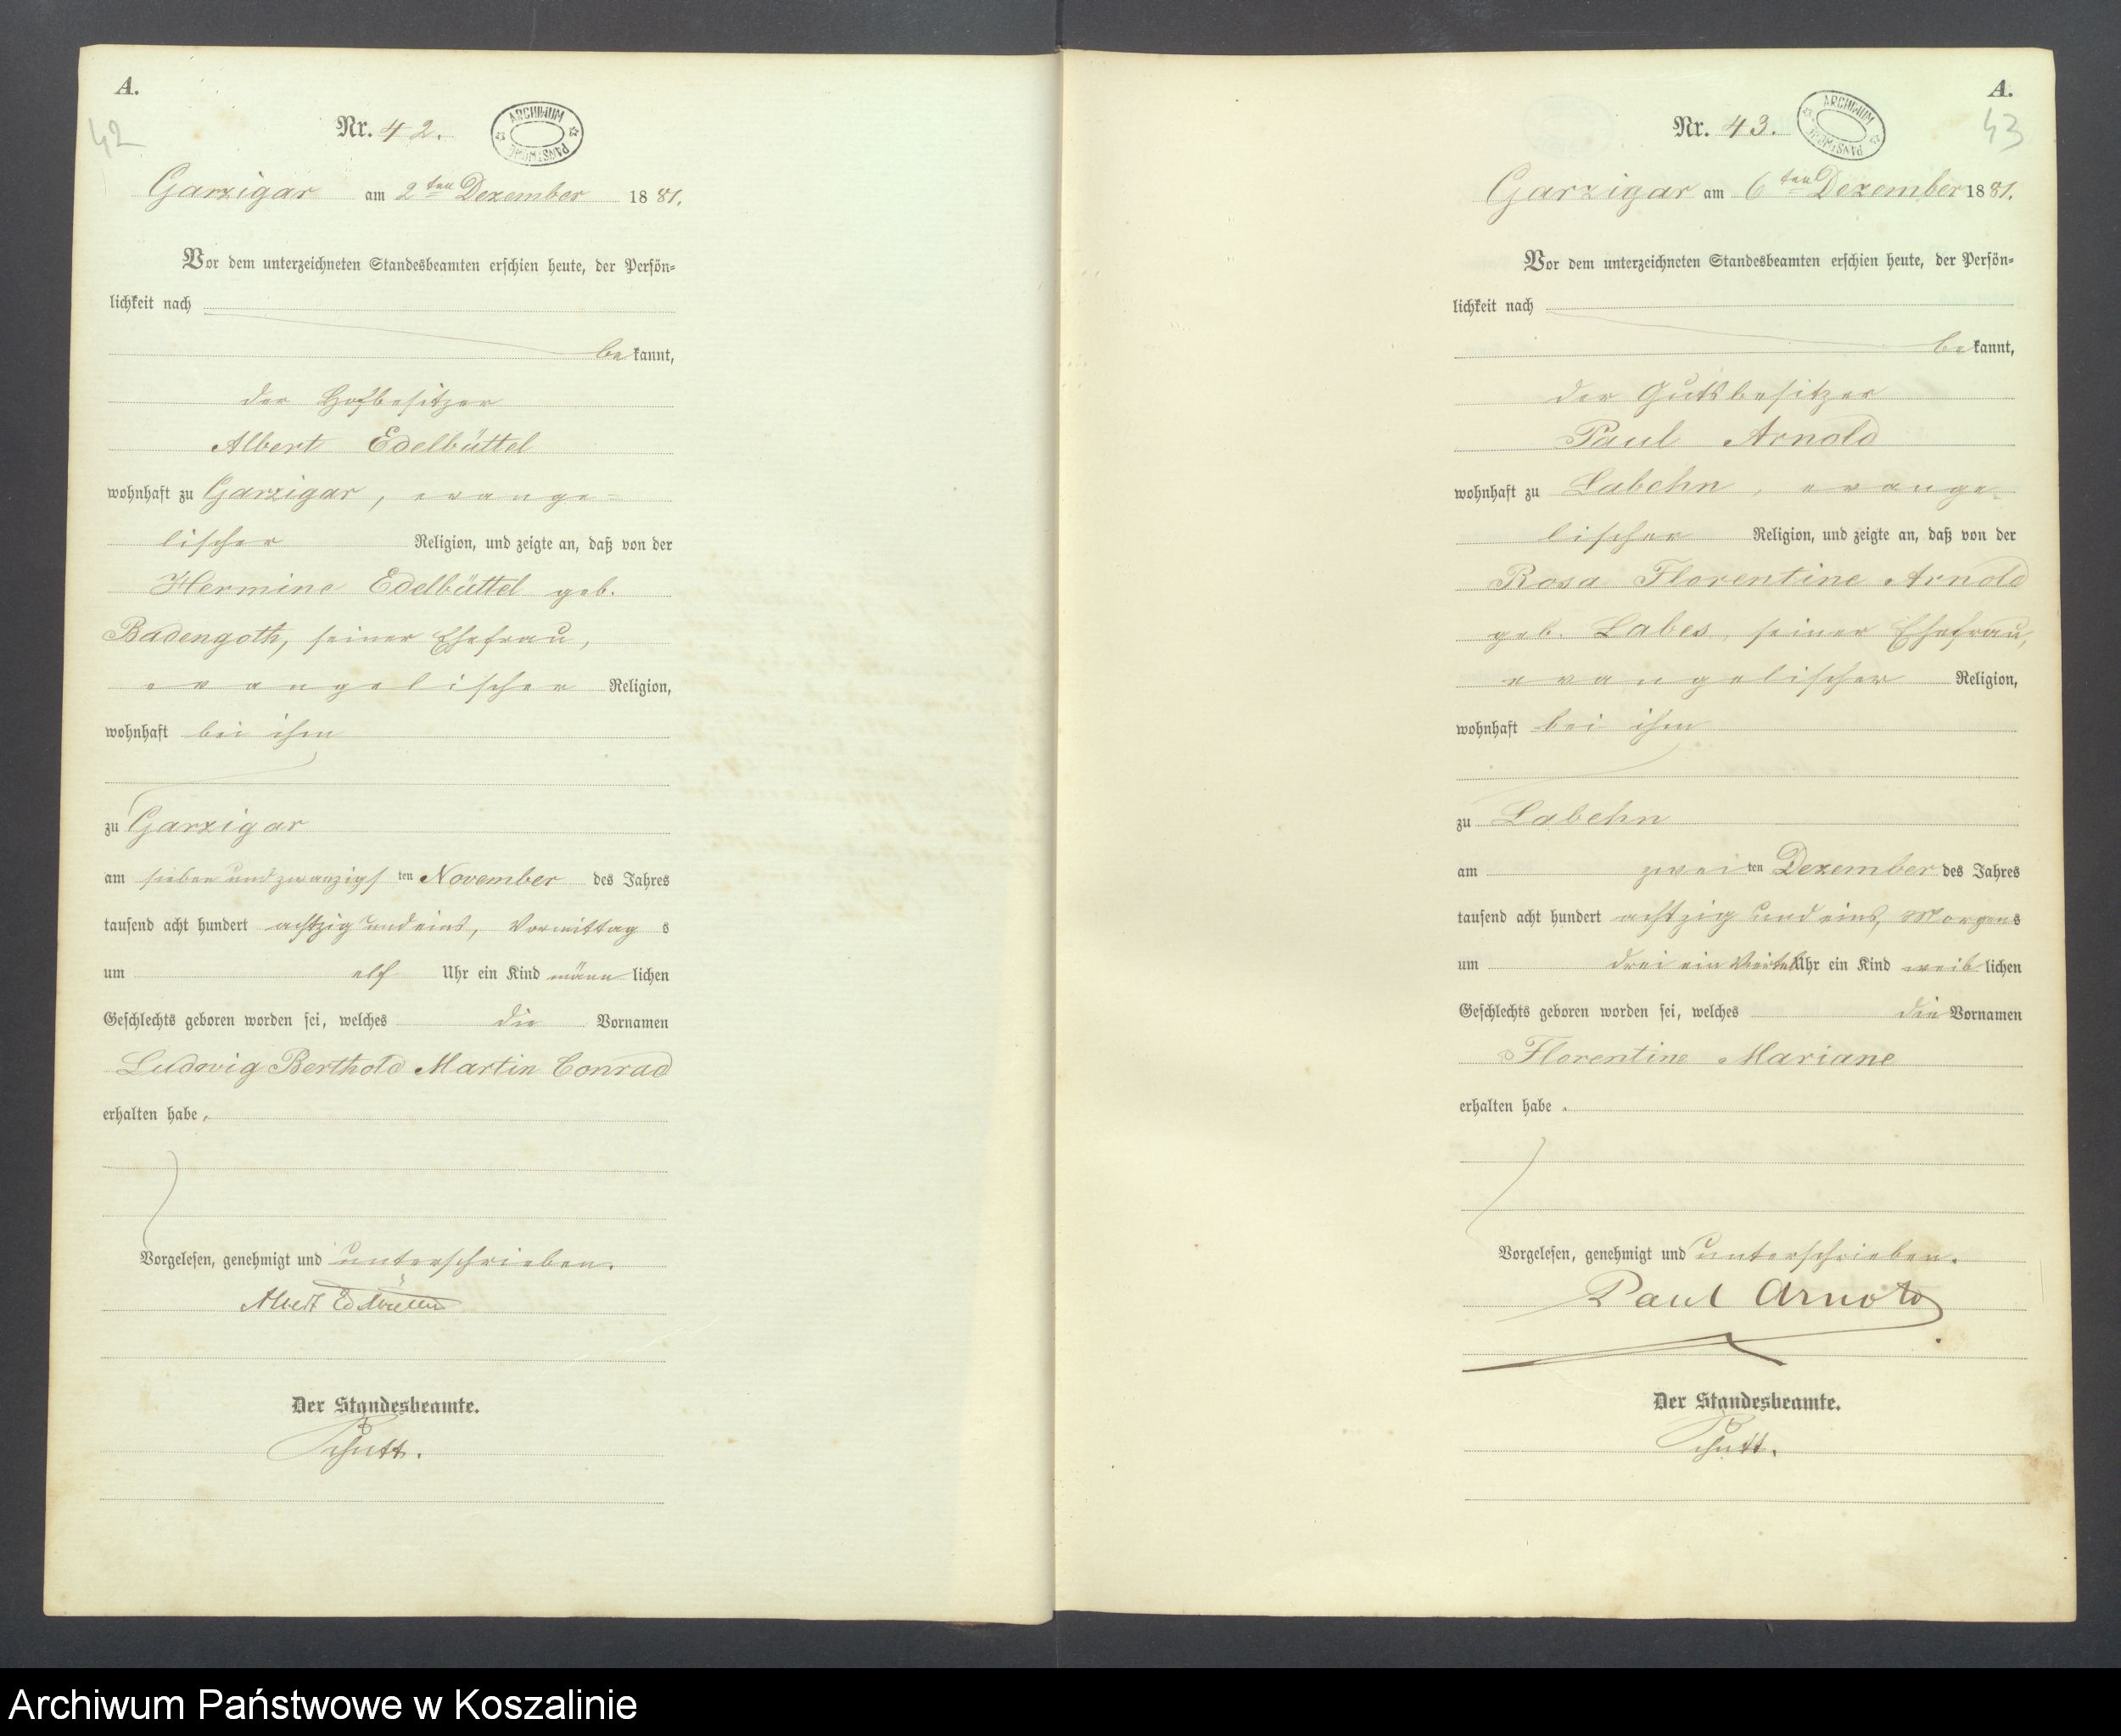 A.
42
Nr. 42.
ARCHIWUM PAŃSTWOWE
Garzigar am 2ten Dezember 1881.
Vor dem unterzeichneten Standesbeamten erschien heute, der Persön=
lichkeit nach
bekannt,
der Hofbesitzer
Albert Edelbüttel
wohnhaft zu Garzigar, evange=
lischer Religion, und zeigte an, daß von der
Hermine Edelbüttel geb.
Badengoth, seiner Ehefrau,
evangelischer Religion,
wohnhaft bei ihm
zu Garzigar
am sieben und zwanzigsten November des Jahres
tausend acht hundert achtzig und eins, Vormittags
um elf Uhr ein Kind männlichen
Geschlechts geboren worden sei, welches die Vornamen
Ludwig Berthold Martin Conrad
erhalten habe.
Vorgelesen, genehmigt und unterschrieben.
Albert Edelbüttel
Der Standesbeamte.
Schutt.
A.
43
Nr. 43.
ARCHIWUM PAŃSTWOWE
Garzigar am 6ten Dezember 1881.
Vor dem unterzeichneten Standesbeamten erschien heute, der Persön=
lichkeit nach
bekannt,
der Gutsbesitzer
Paul Arnold
wohnhaft zu Labehn, evange=
lischer Religion, und zeigte an, daß von der
Rosa Florentine Arnold
geb. Labes, seiner Ehefrau,
evangelischer Religion,
wohnhaft bei ihm
zu Labehn
am zweiten Dezember des Jahres
tausend acht hundert achtzig und eins, Morgens
um drei ein Viertel Uhr ein Kind weiblichen
Geschlechts geboren worden sei, welches die Vornamen
Florentine Mariane
erhalten habe.
Vorgelesen, genehmigt und unterschrieben.
Paul Arnold
Der Standesbeamte.
Schutt.
Archiwum Państwowe w Koszalinie